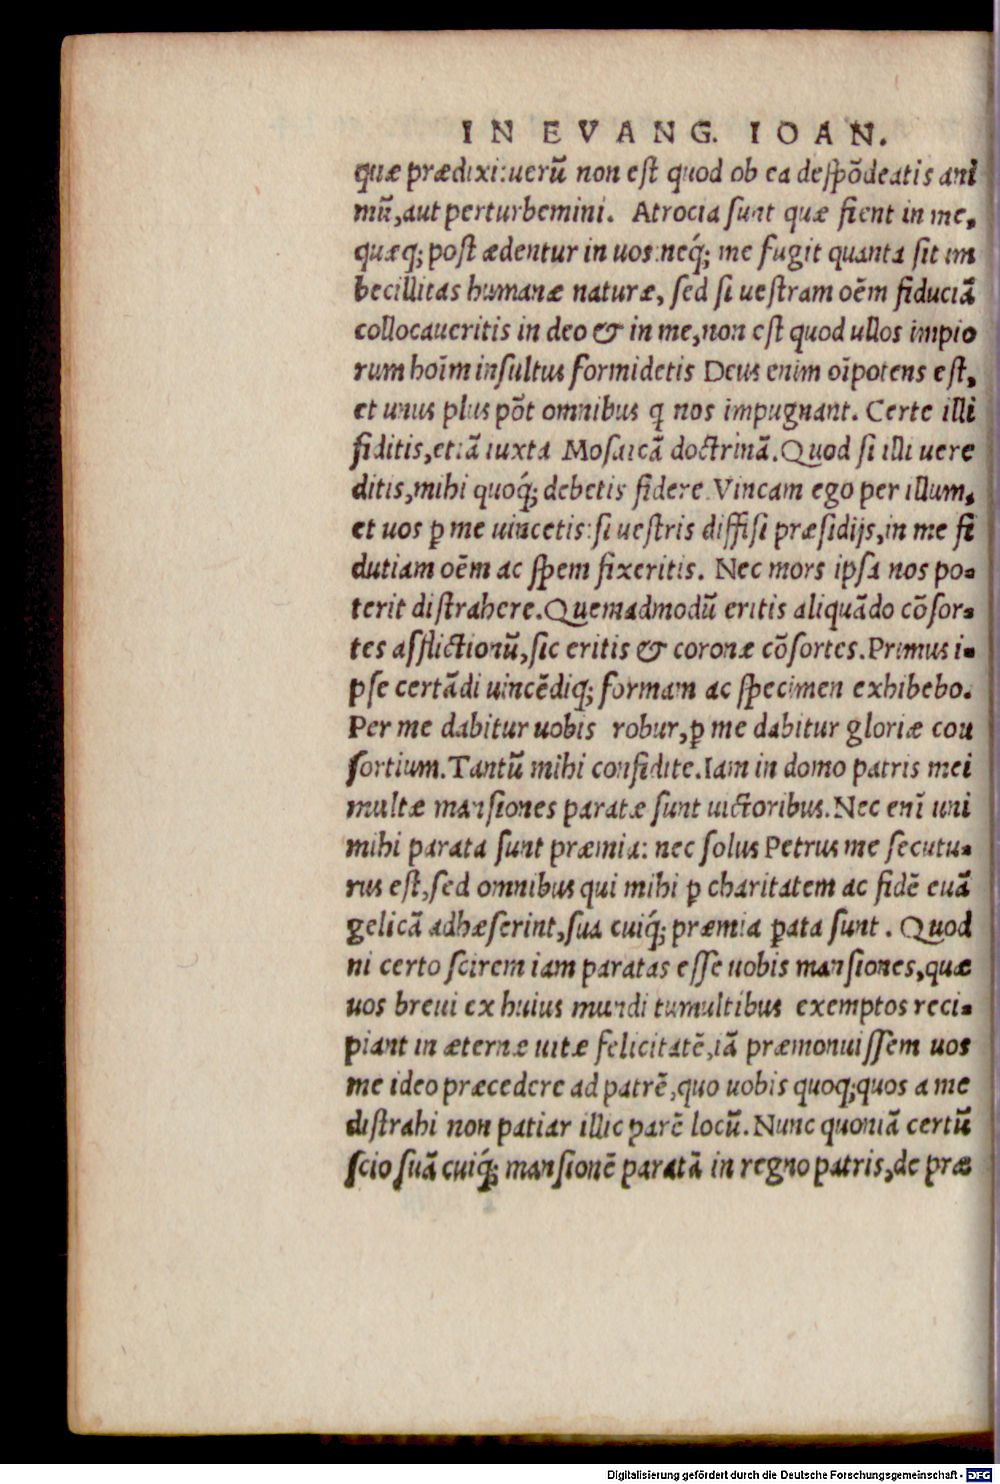 IN EVANG. IOAN.
quæ prædixi:uerũ non est quod ob ea despõdeatis ani
mũ,aut perturbemini. Atrocia sunt quæ fient in me,
quæq; post ædentur in uos:neq́; me fugit quanta sit im
becillitas humanæ naturæ, sed si uestram oẽm fiduciã
collocaueritis in deo & in me,non est quod ullos impio
rum hoĩm insultus formidetis Deus enim oĩpotens est,
et unus plus põt omnibus q nos impugnant. Certe illi
fiditis,etiã iuxta Mosaicã doctrinã.Quod si illi uere
ditis,mihi quoq́; debetis fidere.Vincam ego per illum,
et uos ꝑ me uincetis:si uestris diffisi præsidijs,in me fi
dutiam oẽm ac spem fixeritis. Nec mors ipsa nos po-
terit distrahere.Quemadmodũ eritis aliquãdo cõsor-
tes afflictionũ,sic eritis & coronæ cõsortes.Primus i-
pse certãdi uincẽdiq; formam ac specimen exhibebo.
Per me dabitur uobis robur,ꝑ me dabitur gloriæ con
sortium.Tantũ mihi confidite.Iam in domo patris mei
multæ mansiones paratæ sunt uictoribus.Nec enĩ uni
mihi parata sunt præmia: nec solus Petrus me secutu-
rus est,sed omnibus qui mihi ꝑ charitatem ac fidẽ euã
gelicã adhæserint,sua cuiq́; præmia ꝑata sunt . Quod
ni certo scirem iam paratas esse uobis mansiones,quæ
uos breui ex huius mundi tumultibus exemptos reci-
piant in æternæ uitæ felicitatẽ,iã præmonuissem uos
me ideo præcedere ad patrẽ,quo uobis quoq;quos a me
distrahi non patiar illic parẽ locũ.Nunc quoniã certũ
scio suã cuiq́; mansionẽ paratã in regno patris,de præ
Digitalisierung gefördert durch die Deutsche Forschungsgemeinschaft - DFG